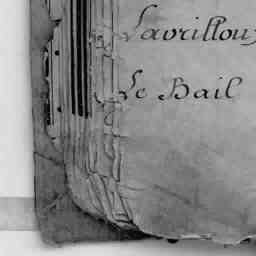 Lavrillou
Le Bail